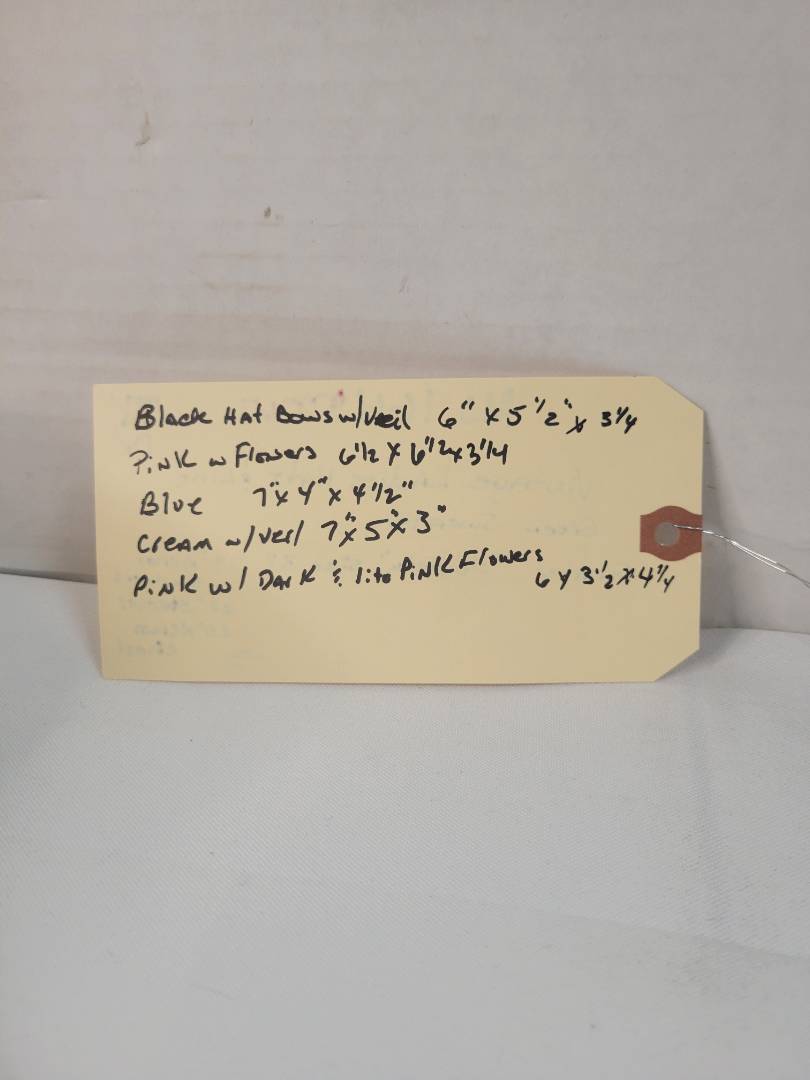 Black Hat Bows w/Veil 6" x 5 1/2" x 3 1/4
Pink w Flowers 6 1/2 x 6 1/2 x 3 1/4
Blue 7" x 4" x 4 1/2"
Cream w/Veil 7" x 5" x 3"
Pink w/ Dark & lite Pink Flowers
6 x 3 1/2 x 4 1/4